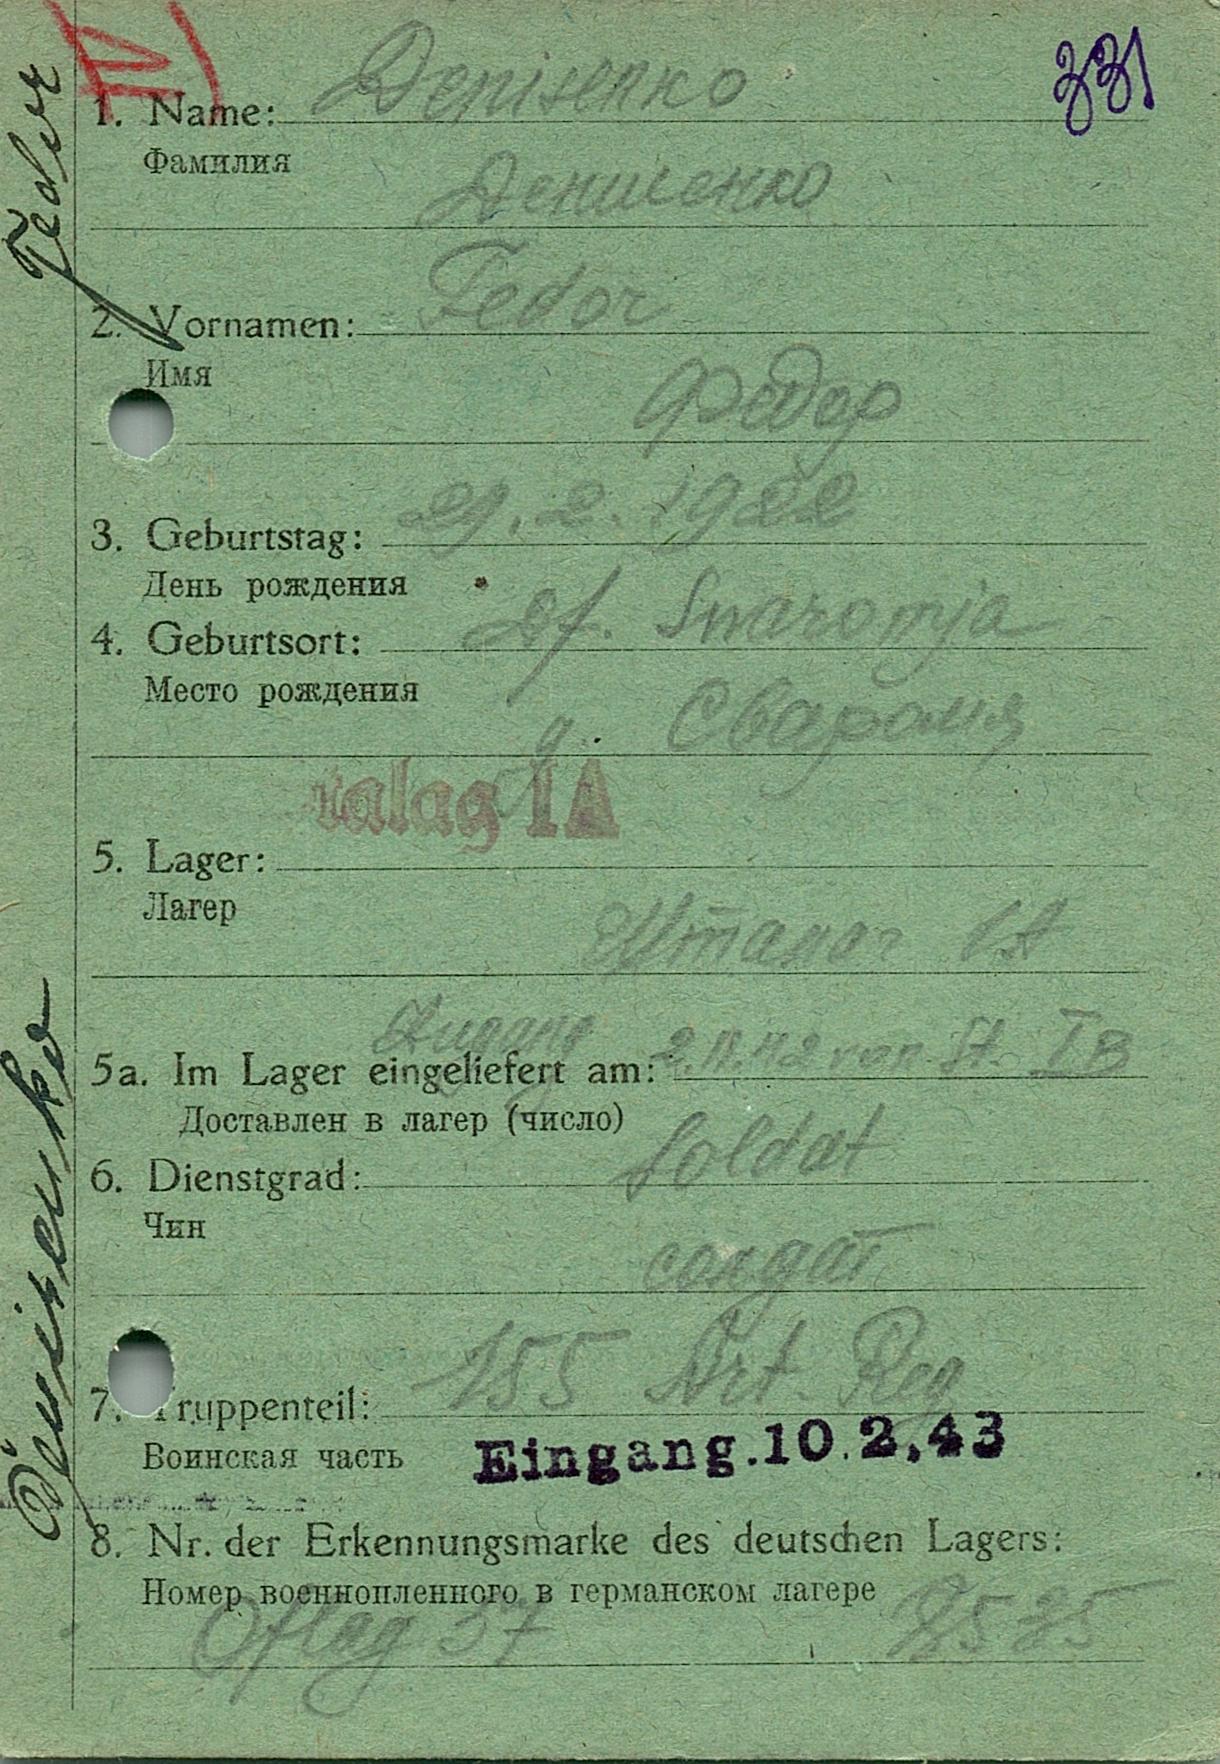 331
1. Name: Denisenko
Фамилия
Денисенко
2. Vornamen: Fedor
Имя
Федор
3. Geburtstag: 29.2.1922
День рождения
4. Geburtsort: Df. Swaromja
Место рождения
д. Сваромя
talag IA
5. Lager:
Лагер
Шталаг IA
5a. Im Lager eingeliefert am: Zugang von St. IB
Доставлен в лагер (число)
6. Dienstgrad: Soldat
Чин
солдат
7. Truppenteil: 155 Art Reg
Воинская часть
Eingang.10.2.43
8. Nr. der Erkennungsmarke des deutschen Lagers:
Номер военнопленного в германском лагере
Oflag 57
Denisenko Fedor